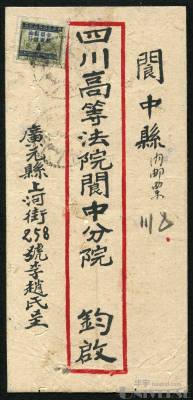 閬中縣
內郵票
四川高等法院閬中分院 鈞啟
廣元縣上河街258號李趙民呈